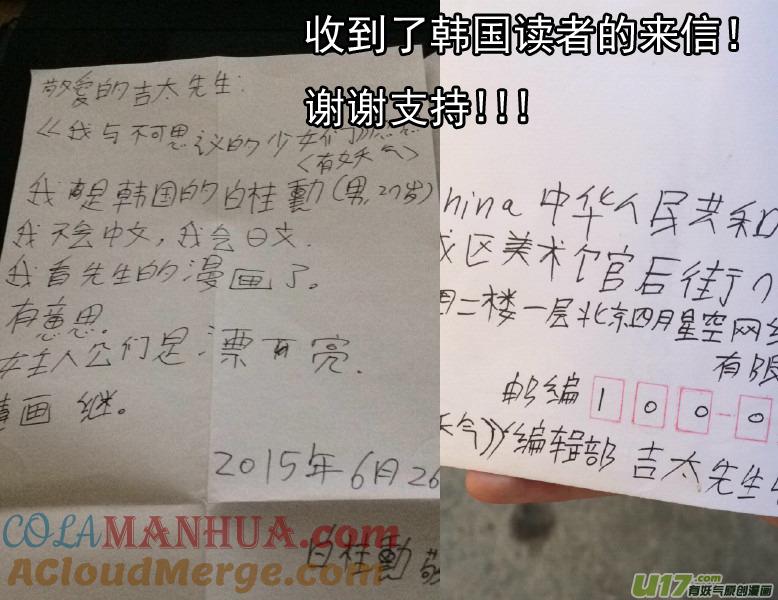 收到了韩国读者的来信！
谢谢支持！！！
敬爱的吉太先生:
《我与不可思议的少女们》
<有妖气>
我是韩国的白桂動(男,27岁)
我不会中文,我会日文.
我看先生的漫画了。
有意思。
女主人公们是漂 亮.
画 继。
2015年6月26
白桂動 敬
China 中华人民共和
区美术馆后街
二楼一层北京四月星空网络
有限
邮编 1 0 0 - 0
》编辑部 吉太先生
COLAMANHUA.COM
ACloudMerge.com
U17.com
有妖气原创漫画